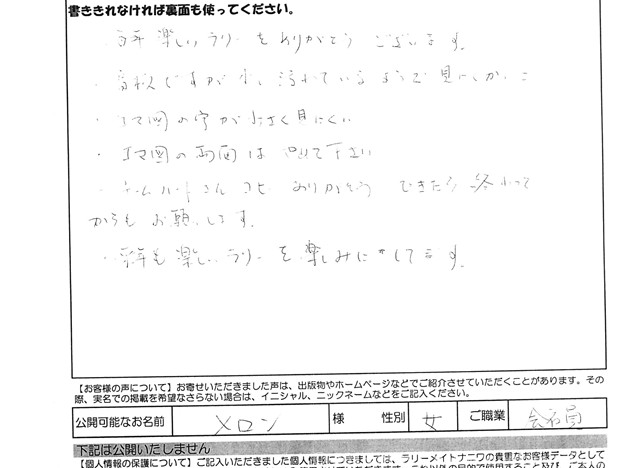 書ききれなければ裏面も使ってください。
・毎年 楽しいラリーをありがとうございます。
・ですが 少し 汚れているようで 見にくい
・コマ図の字が小さく見にくい
・コマ図の両面は 止めて下さい
・ さん ありがとう できたら 終わって
からも お願いします。
・来年も 楽しいラリーを楽しみにしてます。
【お客様の声について】お寄せいただきました声は、出版物やホームページなどでご紹介させていただくことがあります。その
際、実名での掲載を希望なさらない場合は、イニシャル、ニックネームなどをご記入ください。
公開可能なお名前 メロン 様 性別 女 ご職業 会社員
下記は公開いたしません
【個人情報の保護について】ご記入いただきました個人情報につきましては、ラリーメイトナニワの貴重なお客様データとして